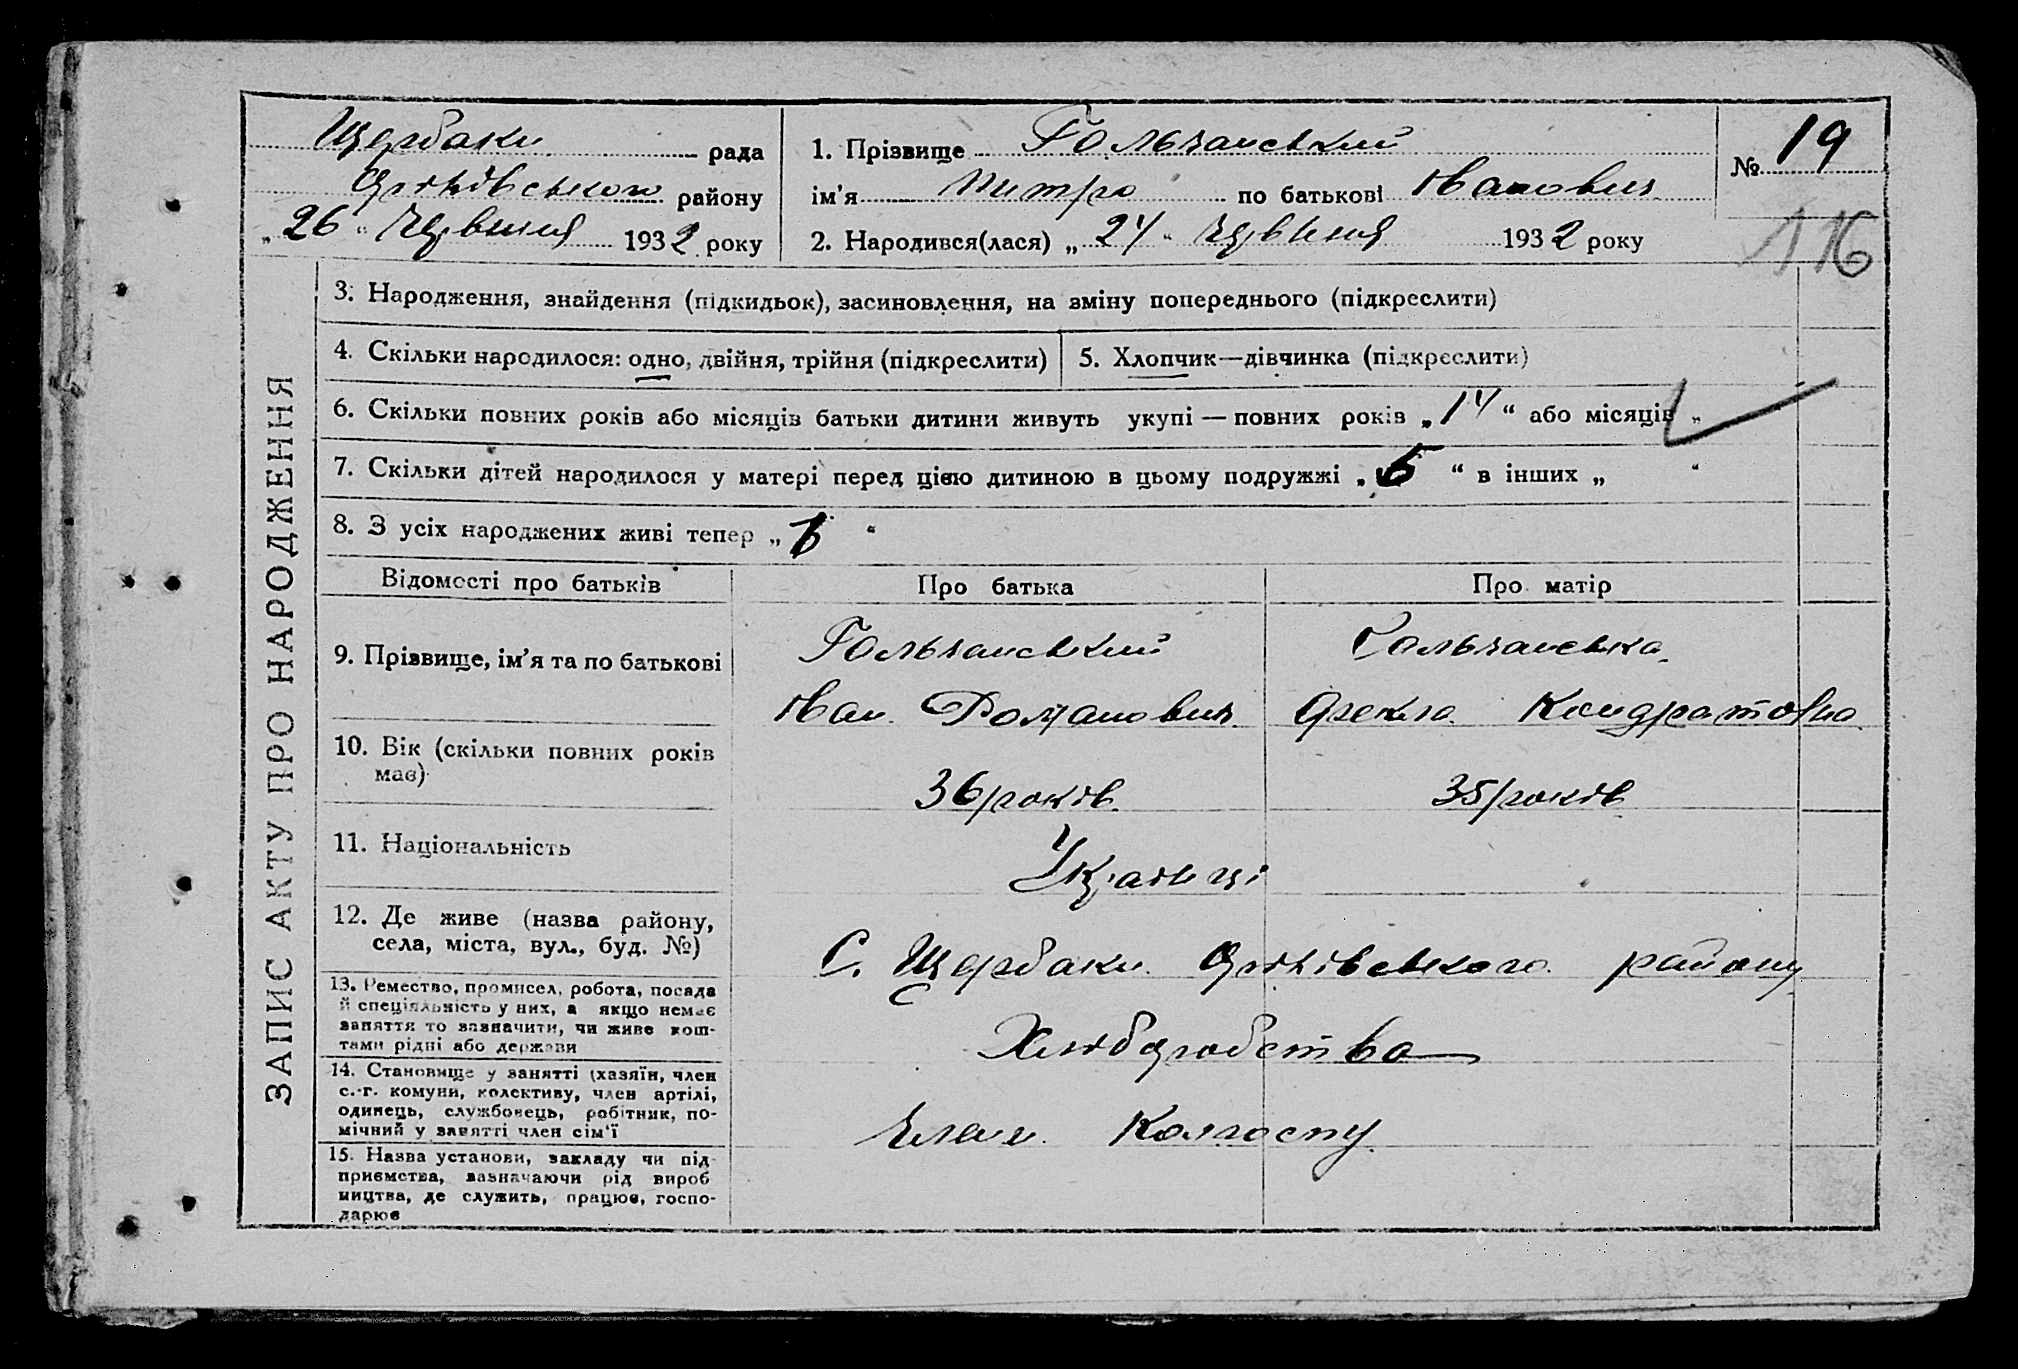 Щербаки рада
району
„ 26 “ Червня 1932 року
1. Прізвище Гольчанський
ім'я Митро по батькові Іванович
2. Народився(лася) „ 24 “ червня 1932 року
№ 19
116
ЗАПИС АКТУ ПРО НАРОДЖЕННЯ
3. Народження, знайдення (підкидьок), засиновлення, на зміну попереднього (підкреслити)
4. Скільки народилося: одно, двійня, трійня (підкреслити)
5. Хлопчик—дівчинка (підкреслити)
6. Скільки повних років або місяців батьки дитини живуть укупі — повних років „ 14 “ або місяців „
7. Скільки дітей народилося у матері перед цією дитиною в цьому подружжі „ 5 “ в інших „ “
8. З усіх народжених живі тепер „ “
Відомості про батьків
Про батька
Про матір
9. Прізвище, ім'я та по батькові
Гольчанський
Іван Романович
Гольчанська
Фекла Кондратовна
10. Вік (скільки повних років
має)
36 років
35 років
11. Національність
Українці
12. Де живе (назва району,
села, міста, вул., буд. №)
С. Щербаки району
13. Ремество, промисел, робота, посада
й спеціяльність у них, а якщо немає
заняття то зазначити, чи живе кош-
тами рідні або держави
Хліборобство
14. Становище у занятті (хазяїн, член
с.-г. комуни, колективу, член артілі,
одинець, службовець, робітник, по-
мічний у занятті член сім'ї
Член Колгоспу
15. Назва установи, закладу чи під-
приємства, зазначаючи рід вироб
ництва, де служить, працює, госпо-
дарює